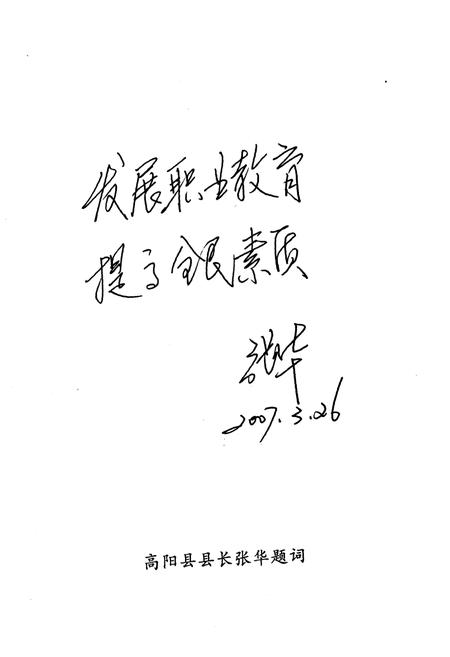 发展职业教育
提高全民素质
张华
2007.3.26
高阳县县长张华题词